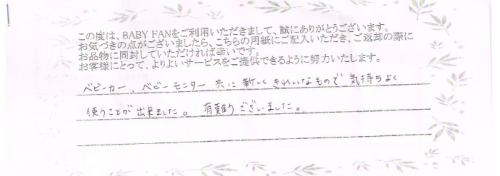 この度は、BABY FANをご利用いただきまして、誠にありがとうございます。
お気づきの点がございましたら、こちらの用紙にご記入いただき、ご返却の際に
お品物に同封していただければ幸いです。
お客様にとって、よりよいサービスをご提供できるように努力いたします。
ベビーカー、ベビーモニター 共に 新しく きれいなもので 気持ちよく
使うことが出来ました。 有難うございました。